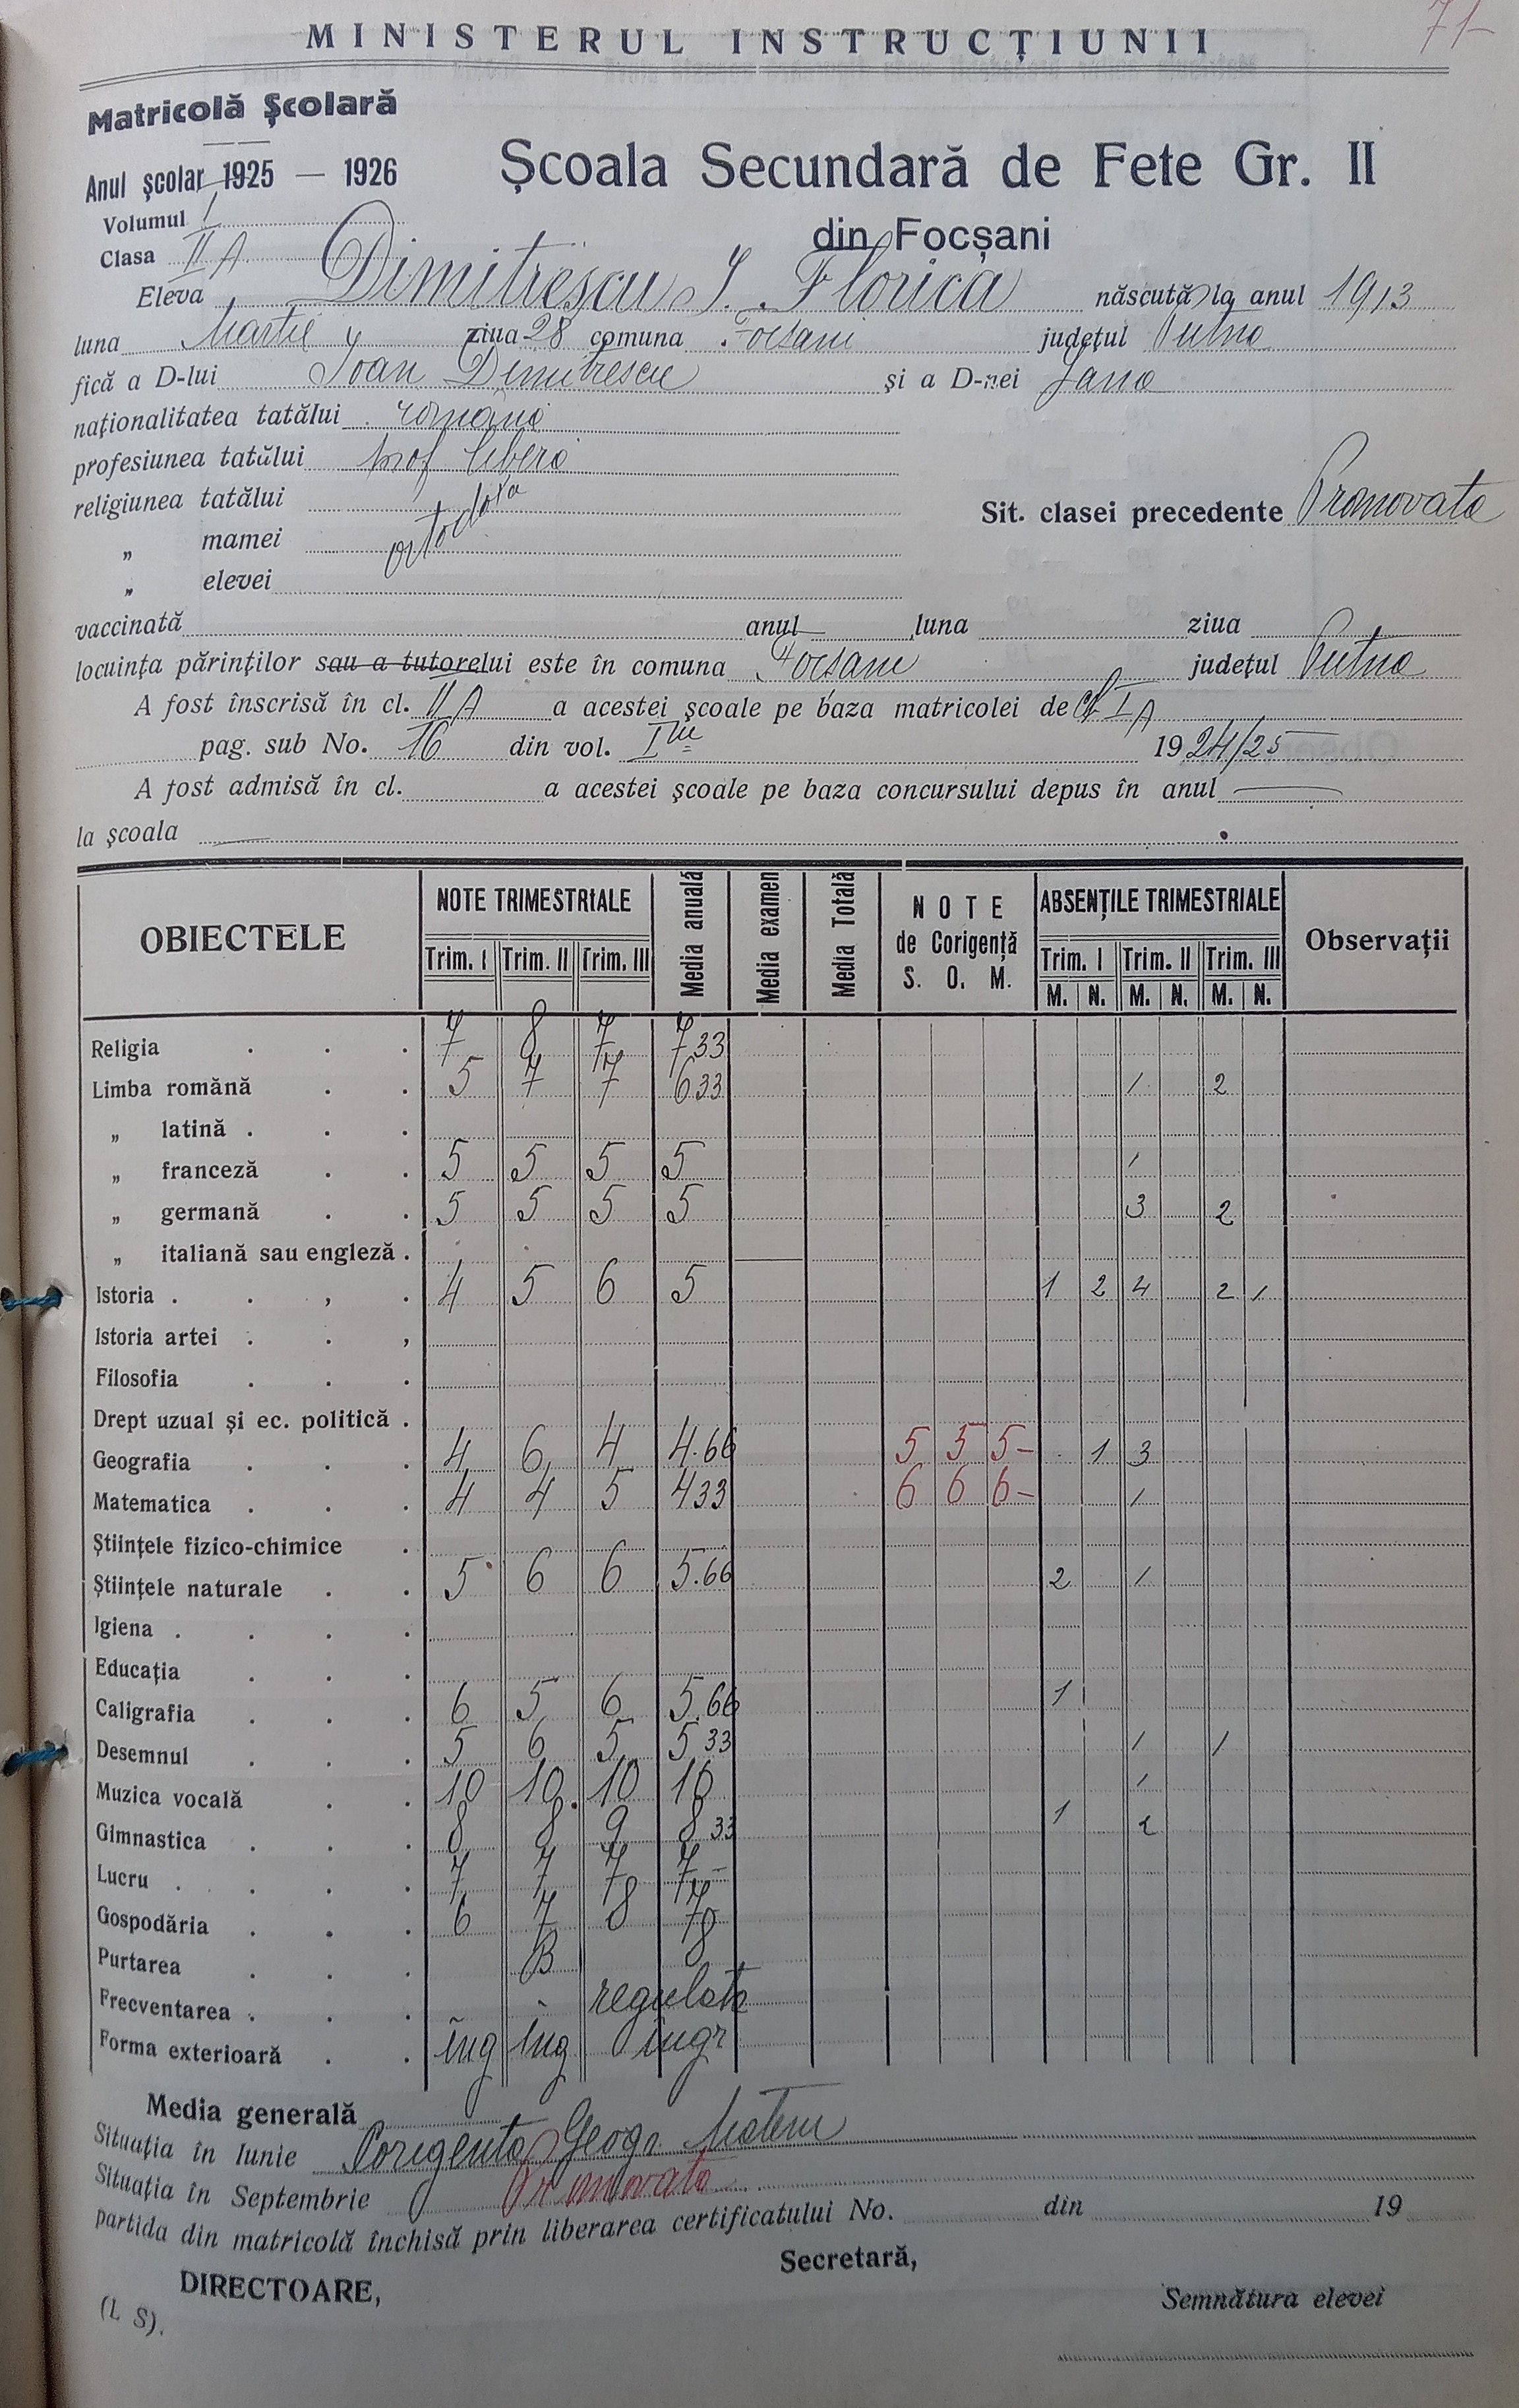 71
MINISTERUL INSTRUCȚIUNII
Matricolă Şcolară
Anul şcolar 1925 — 1926
Şcoala Secundară de Fete Gr. II
din Focşani
Volumul I
Clasa II A
Eleva Dimitrescu I. Florica născută la anul 1913
luna Martie ziua 28 comuna Focsani judeţul Putna
fică a D-lui Ioan Dimitrescu și a D-nei Jana
naţionalitatea tatălui romana
profesiunea tatălui prof libera
religiunea tatălui
„ mamei ortodoxa
„ elevei
Sit. clasei precedente Promovata
vaccinată anul luna ziua
locuinţa părinţilor sau a tutorelui este în comuna Focsani judeţul Putna
A fost înscrisă în cl. II A a acestei şcoale pe baza matricolei de cl I A
pag. sub No. 16 din vol. I 1924/25
A fost admisă în cl. a acestei şcoale pe baza concursului depus în anul —
la şcoala —
OBIECTELE NOTE TRIMESTRIALE Media anuală Media examen Media Totală NOTE de Corigenţă S. O. M. ABSENŢILE TRIMESTRIALE Observaţii
Trim. I Trim. II Trim. III Trim. I Trim. II Trim. III
M. N. M. N. M. N.
Religia 7 8 7 7 33
Limba română 5 7 7 6 33 1 2
„ latină
„ franceză 5 5 5 5 1
„ germană 5 5 5 5 3 2
„ italiană sau engleză
Istoria 4 5 6 5 1 2 4 2 1
Istoria artei
Filosofia
Drept uzual şi ec. politică
Geografia 4 6 4 4.66 5 5 5- 1 3
Matematica 4 4 5 4 33 6 6 6- 1
Ştiinţele fizico-chimice
Ştiinţele naturale 5 6 6 5.66 2 1
Igiena
Educaţia
Caligrafia 6 5 6 5.66 1
Desemnul 5 6 5 5 33 1 1
Muzica vocală 10 10 10 10 1
Gimnastica 8 8 9 8 33 1 2
Lucru 7 7 7 7-
Gospodăria 6 7 8 7
Purtarea B 8
Frecventarea regulata
Forma exterioară îng îng îngr
Media generală
Situaţia în Iunie Corigenta Geogr. Matem
Situaţia în Septembrie Promovata
partida din matricolă închisă prin liberarea certificatului No. din 19
Secretară,
DIRECTOARE,
Semnătura elevei
(L S).